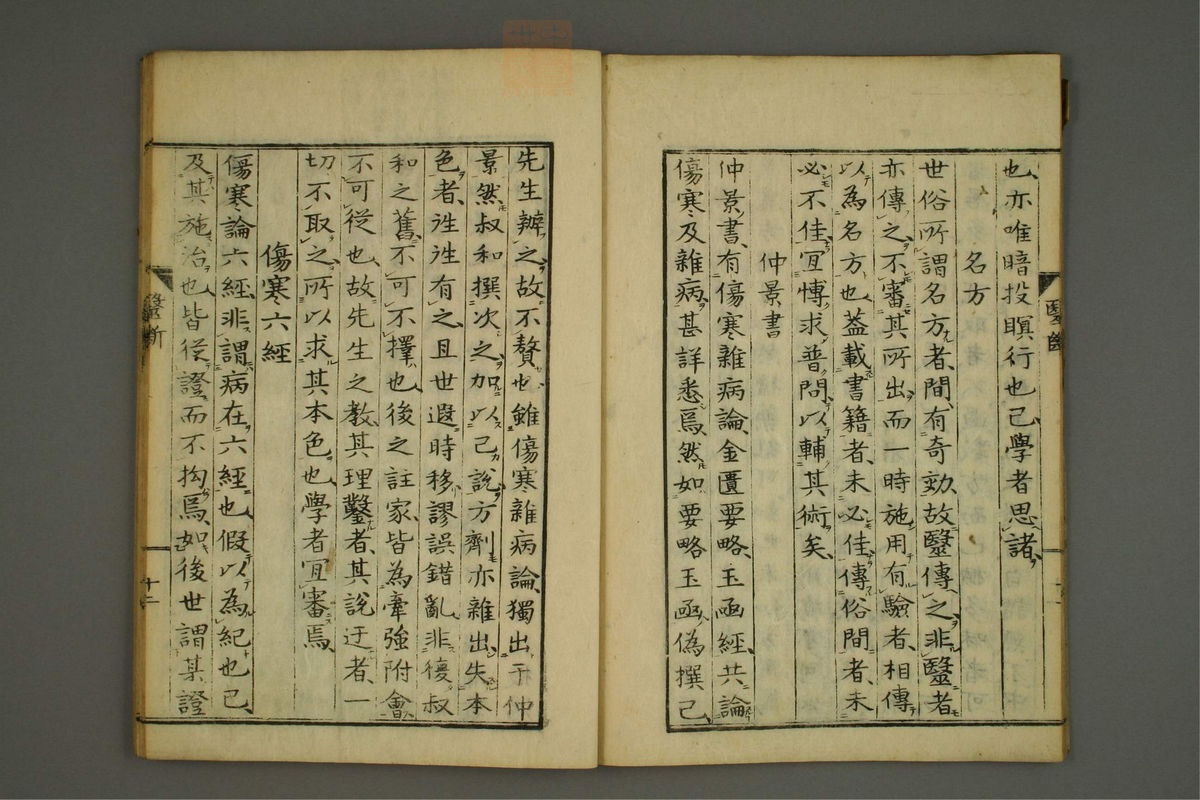 也亦唯暗投瞑行也已學者思諸
名方
世俗所謂名方者間有奇効故毉傳之非毉者
亦傳之不審其所出而一時施用有驗者相傳
以為名方也蓋載書籍者未必佳傳俗間者未
必不佳宜慱求普問以輔其術矣
仲景書
仲景書有傷寒雜病論金匱要略玉函經共論
傷寒及雜病甚詳悉焉然如要略玉函偽撰已
先生辨之故不贅也雖傷寒雜病論獨出于仲
景然叔和撰次之加以己說方劑亦雜出失本
色者往往有之且世遐時移謬誤錯亂非復叔
和之舊不可不擇也後之註家皆為牽強附會
不可從也故先生之教其理鑿者其說迂者一
切不取之所以求其本色也學者宜審焉
傷寒六經
傷寒論六經非謂病在六經也假以為紀也已
及其施治也皆從證而不拘焉如後世謂某證
毉斷
十二